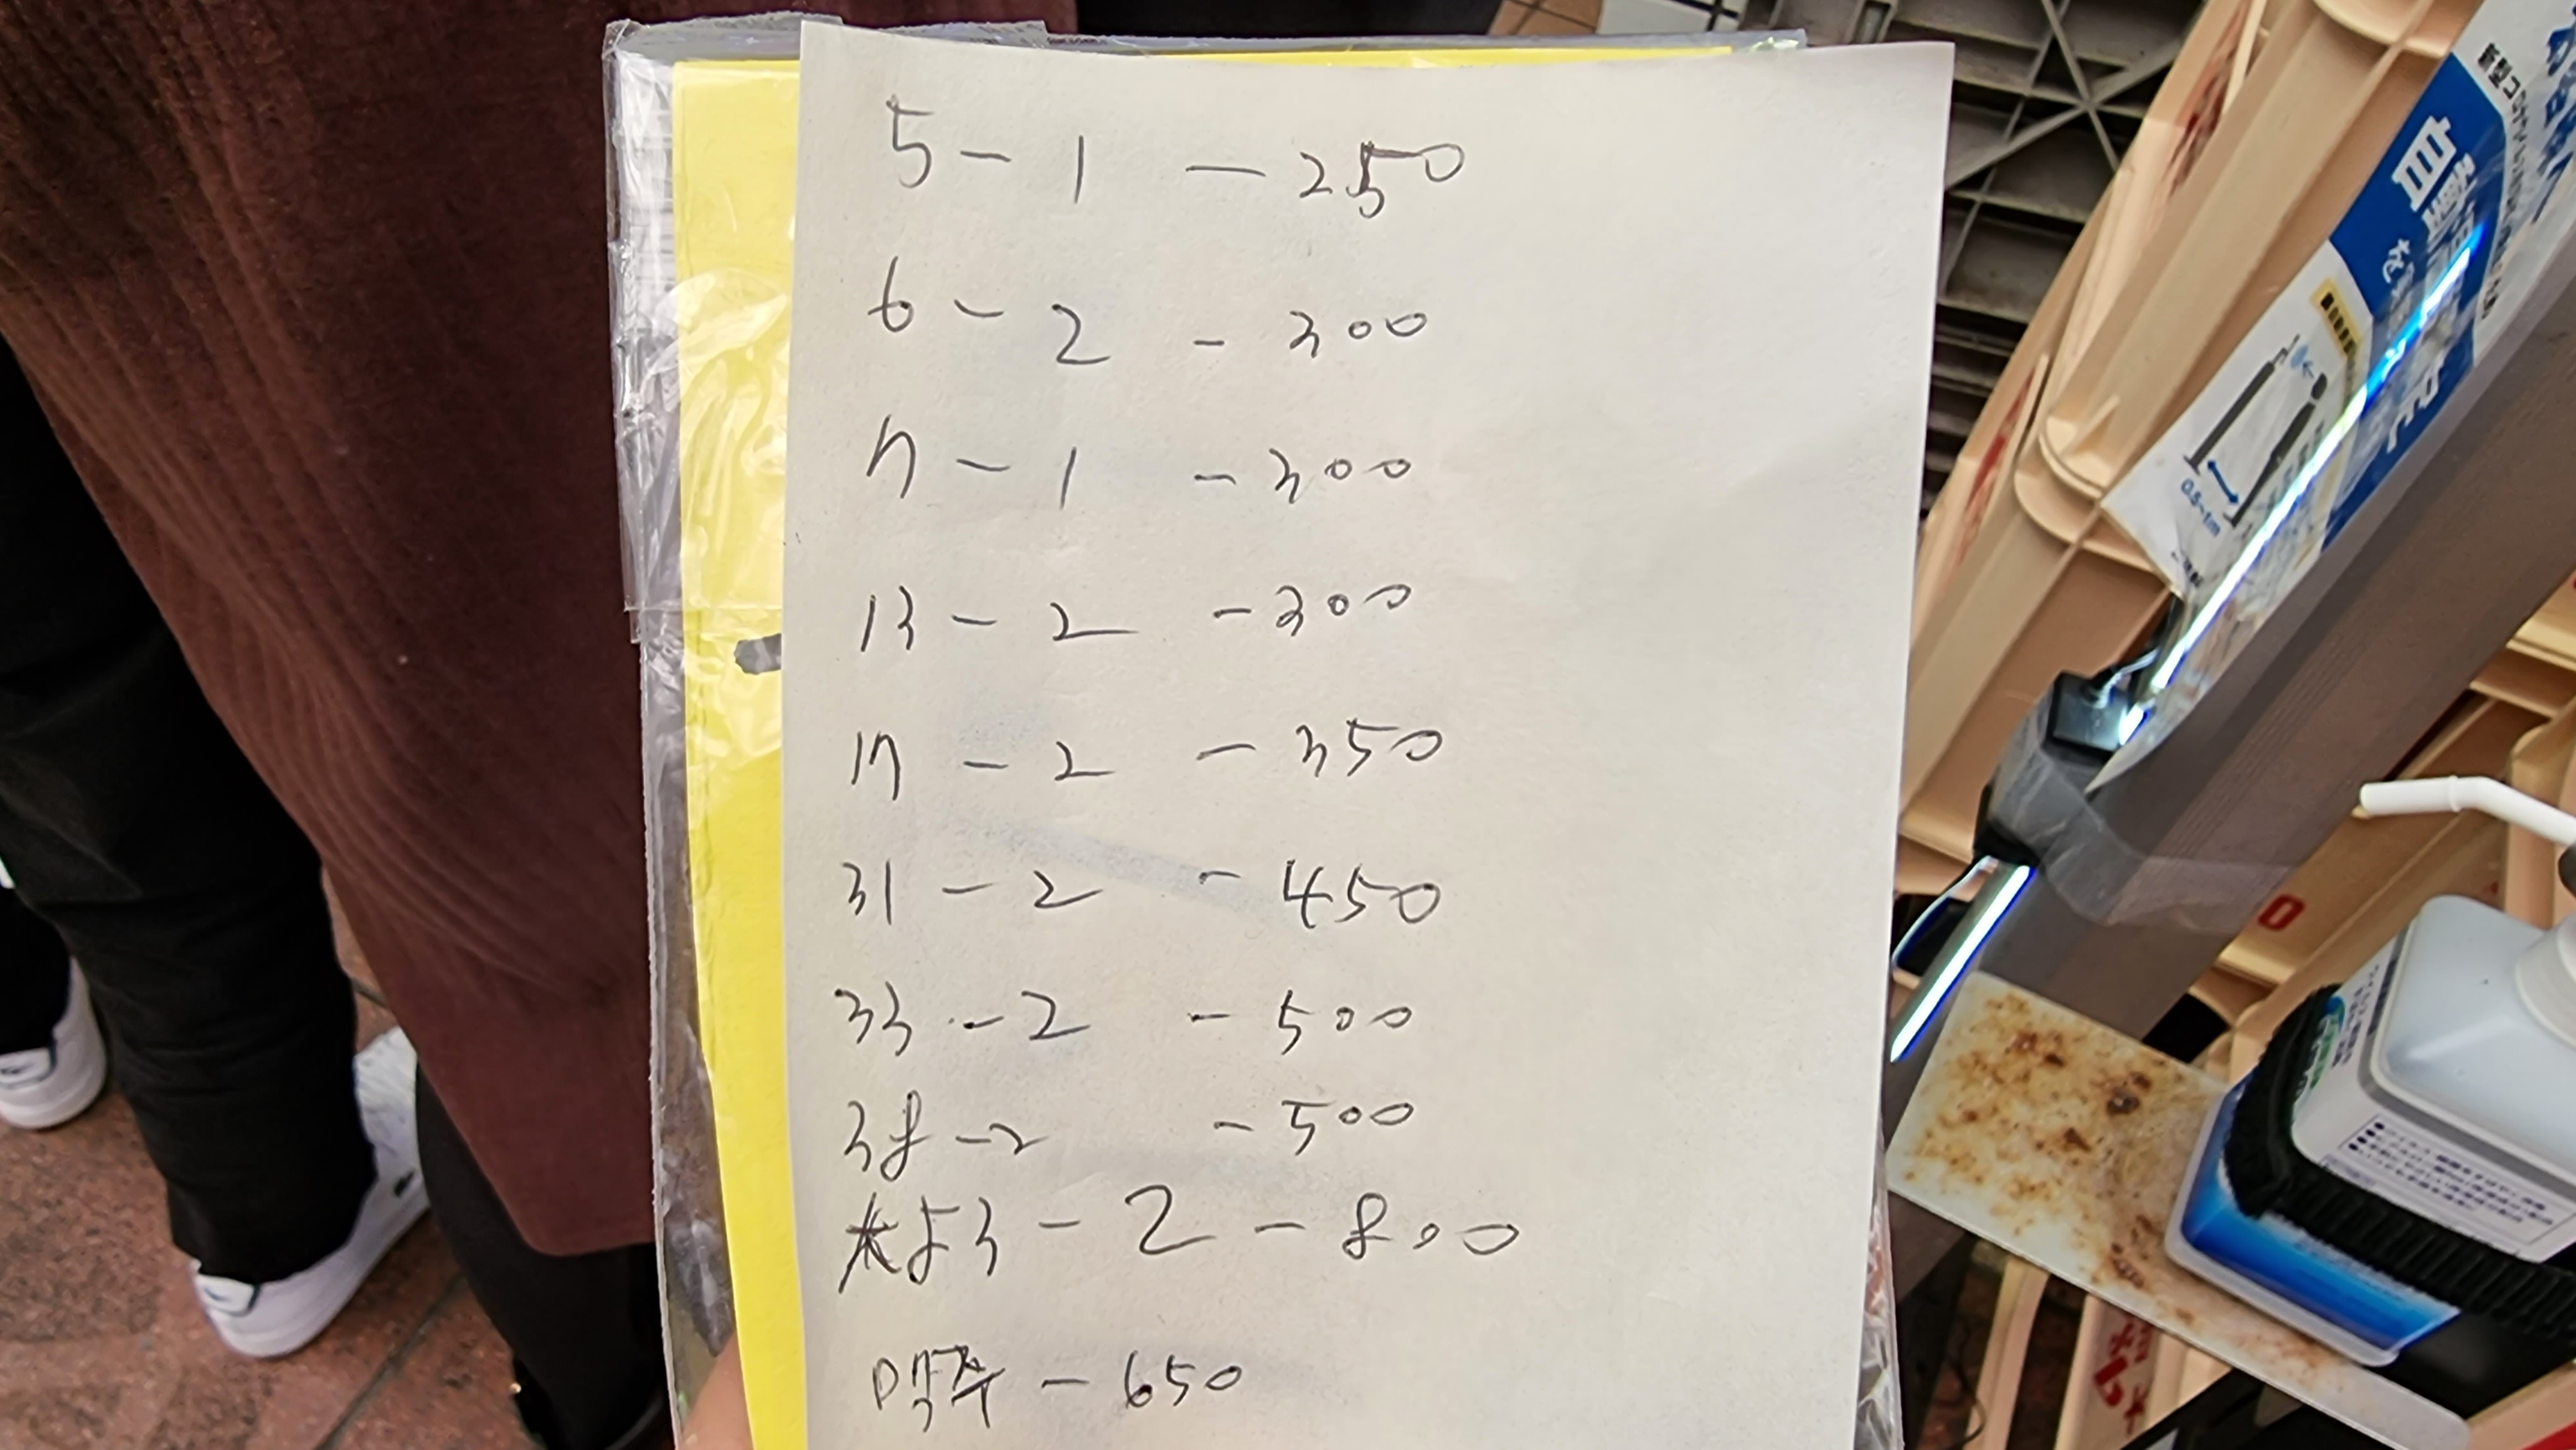 5 - 1 - 250
6 - 2 - 300
7 - 1 - 300
13 - 2 - 300
17 - 2 - 350
31 - 2 - 450
33 - 2 - 500
38 - 2 - 500
53 - 2 - 800
맥주 - 650
0.5~1m